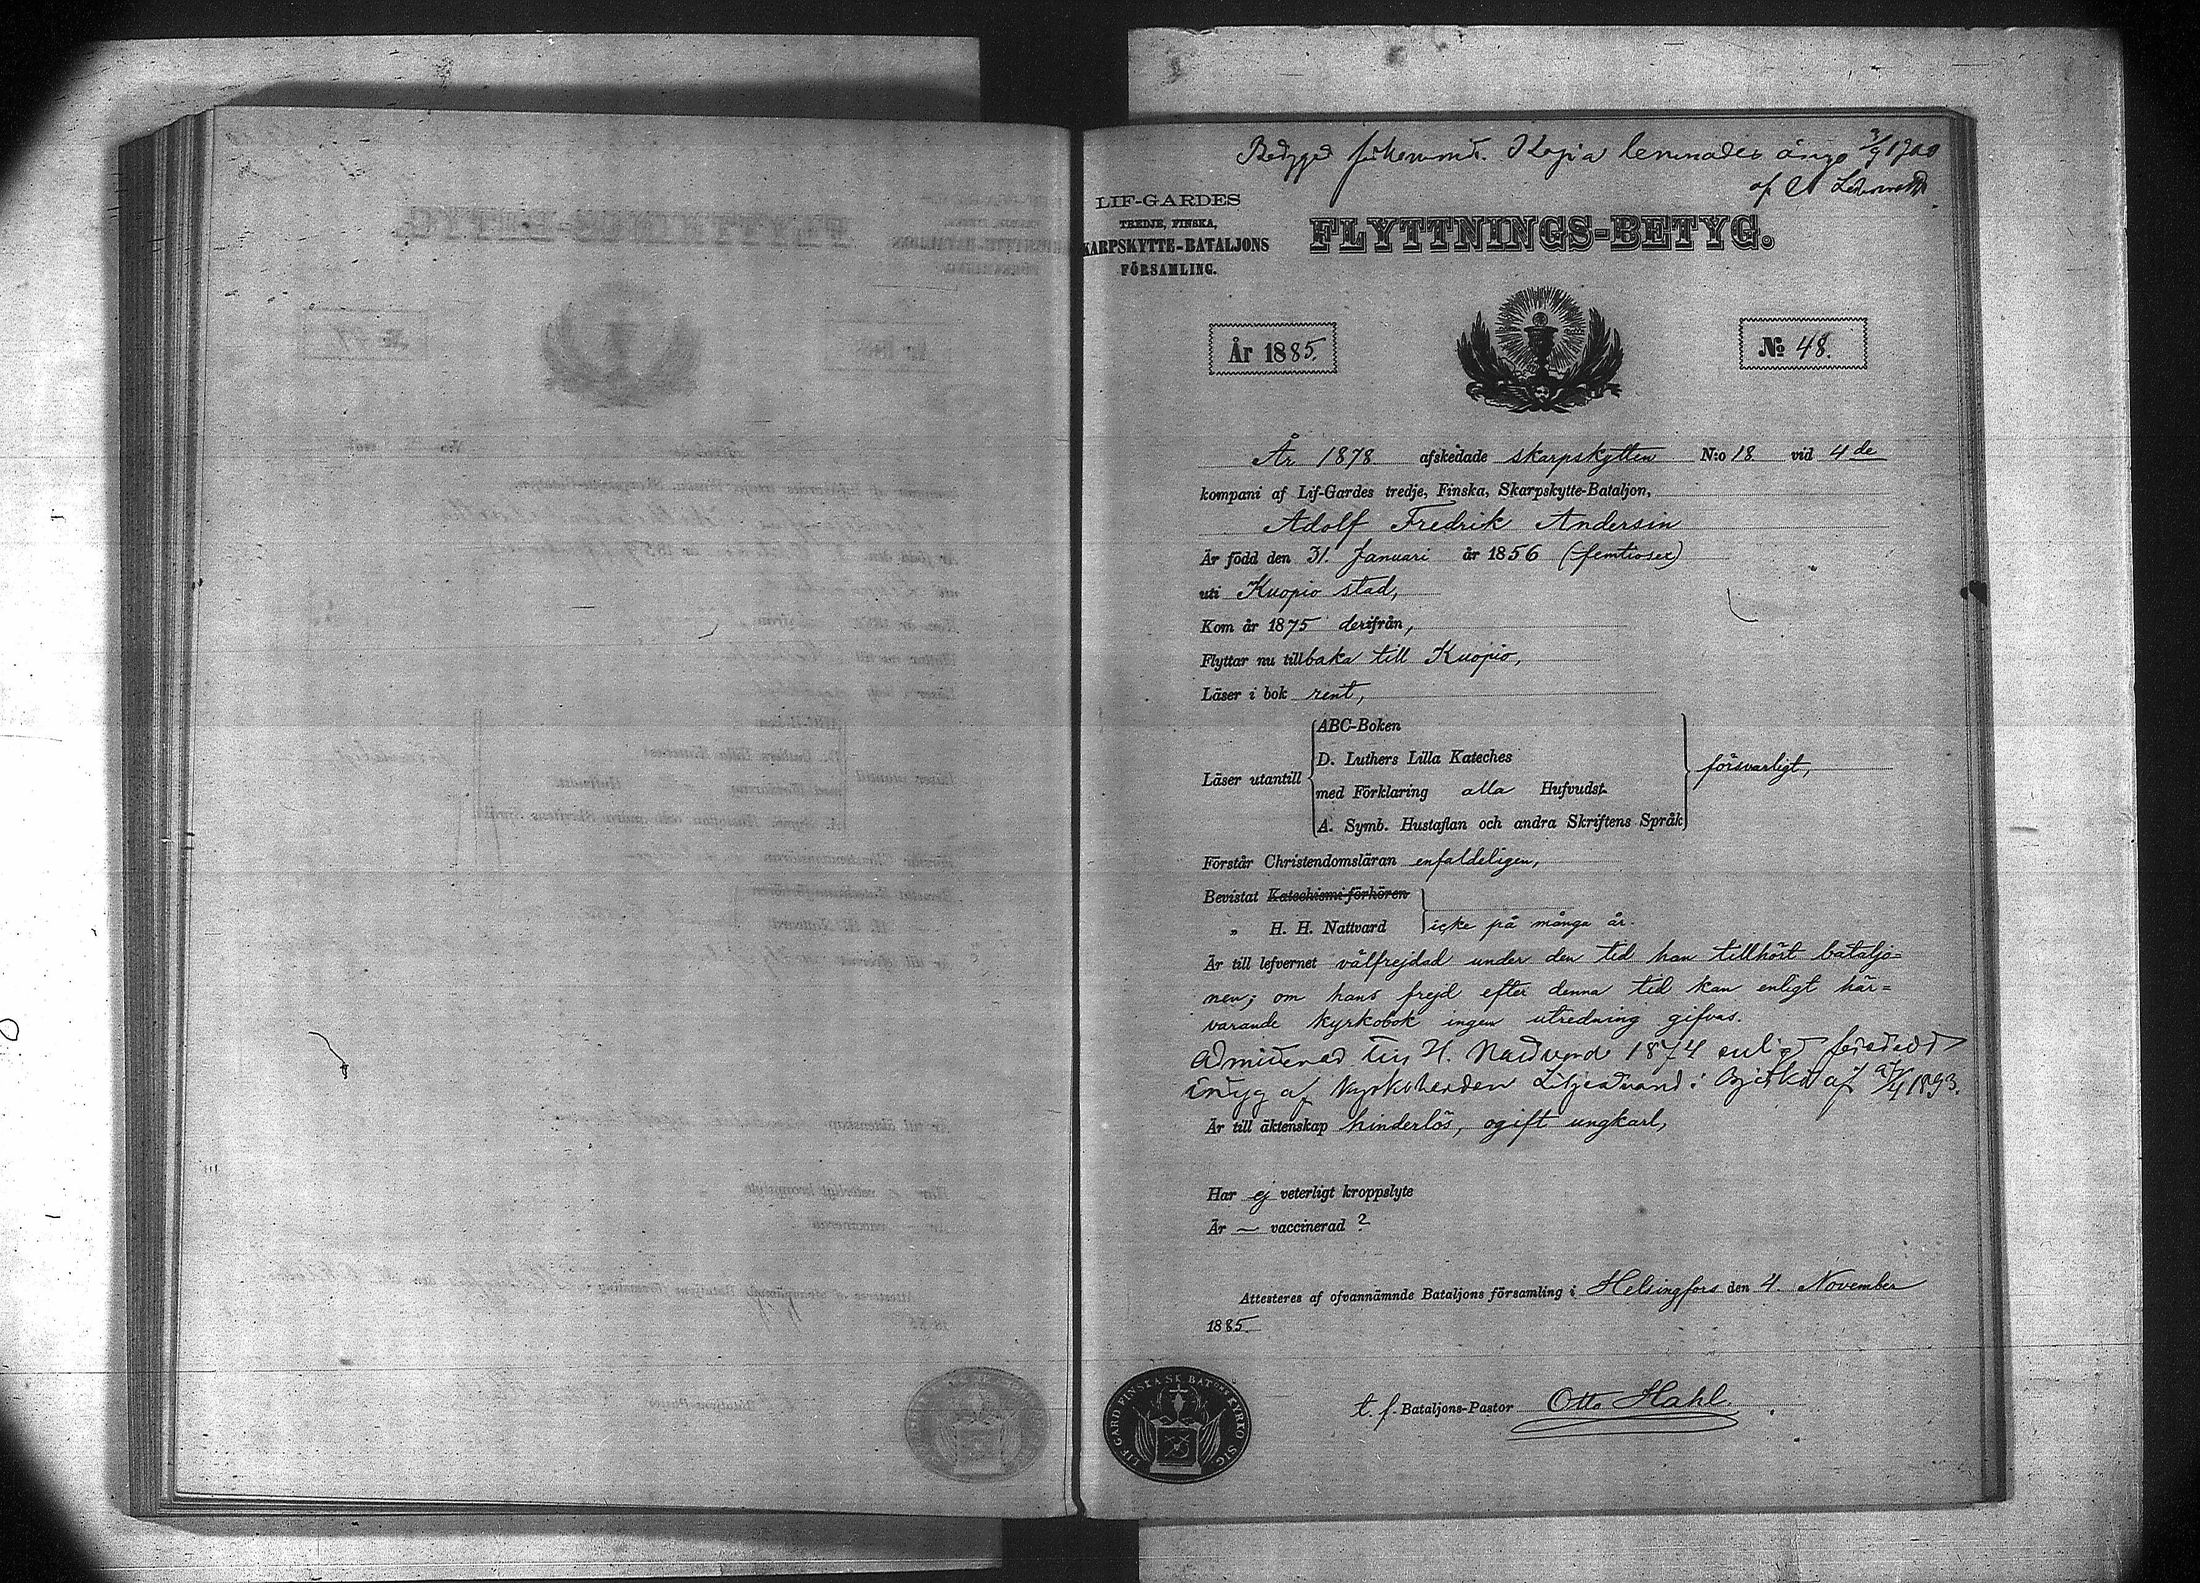 Betyget förkommit. Kopia lemnades ånyo 3/9 1900
af
LIF-GARDES
TREDJE, FINSKA,
SKARPSKYTTE-BATALJONS
FÖRSAMLING.
FLYTTNINGS-BETYG.
År 1885.
No 48.
År 1878 afskedade skarpskytten N:o 18 vid 4de
kompani af Lif-Gardes tredje, Finska, Skarpskytte-Bataljon,
Adolf Fredrik Andersin
Är född den 31. Januari år 1856 (femtiosex)
uti Kuopio stad,
Kom år 1875 derifrån,
Flyttar nu tillbaka till Kuopio,
Läser i bok rent,
Läser utantill
ABC-Boken
D. Luthers Lilla Kateches
med Förklaring alla Hufvudst.
A. Symb. Hustaflan och andra Skriftens Språk
försvarligt,
Förstår Christendomsläran enfaldeligen,
Bevistat Katechismi förhören
„ H. H. Nattvard icke på många år.
Är till lefvernet välfrejdad under den tid han tillhört bataljo=
nen; om hans frejd efter denna tid kan enligt här=
varande kyrkobok ingen utredning gifvas.
Admitterad till H. Nattvard 1874 enligt
af Kyrkoherden Liljestrand i af 1893.
Är till äktenskap hinderlös, ogift ungkarl,
Har ej veterligt kroppslyte
Är — vaccinerad ?
Attesteras af ofvannämnde Bataljons församling i Helsingfors den 4. November
1885.
t. f. Bataljons-Pastor Otto Hahl.
LIF GARD FINSKA SK BAT KYRKO SIG